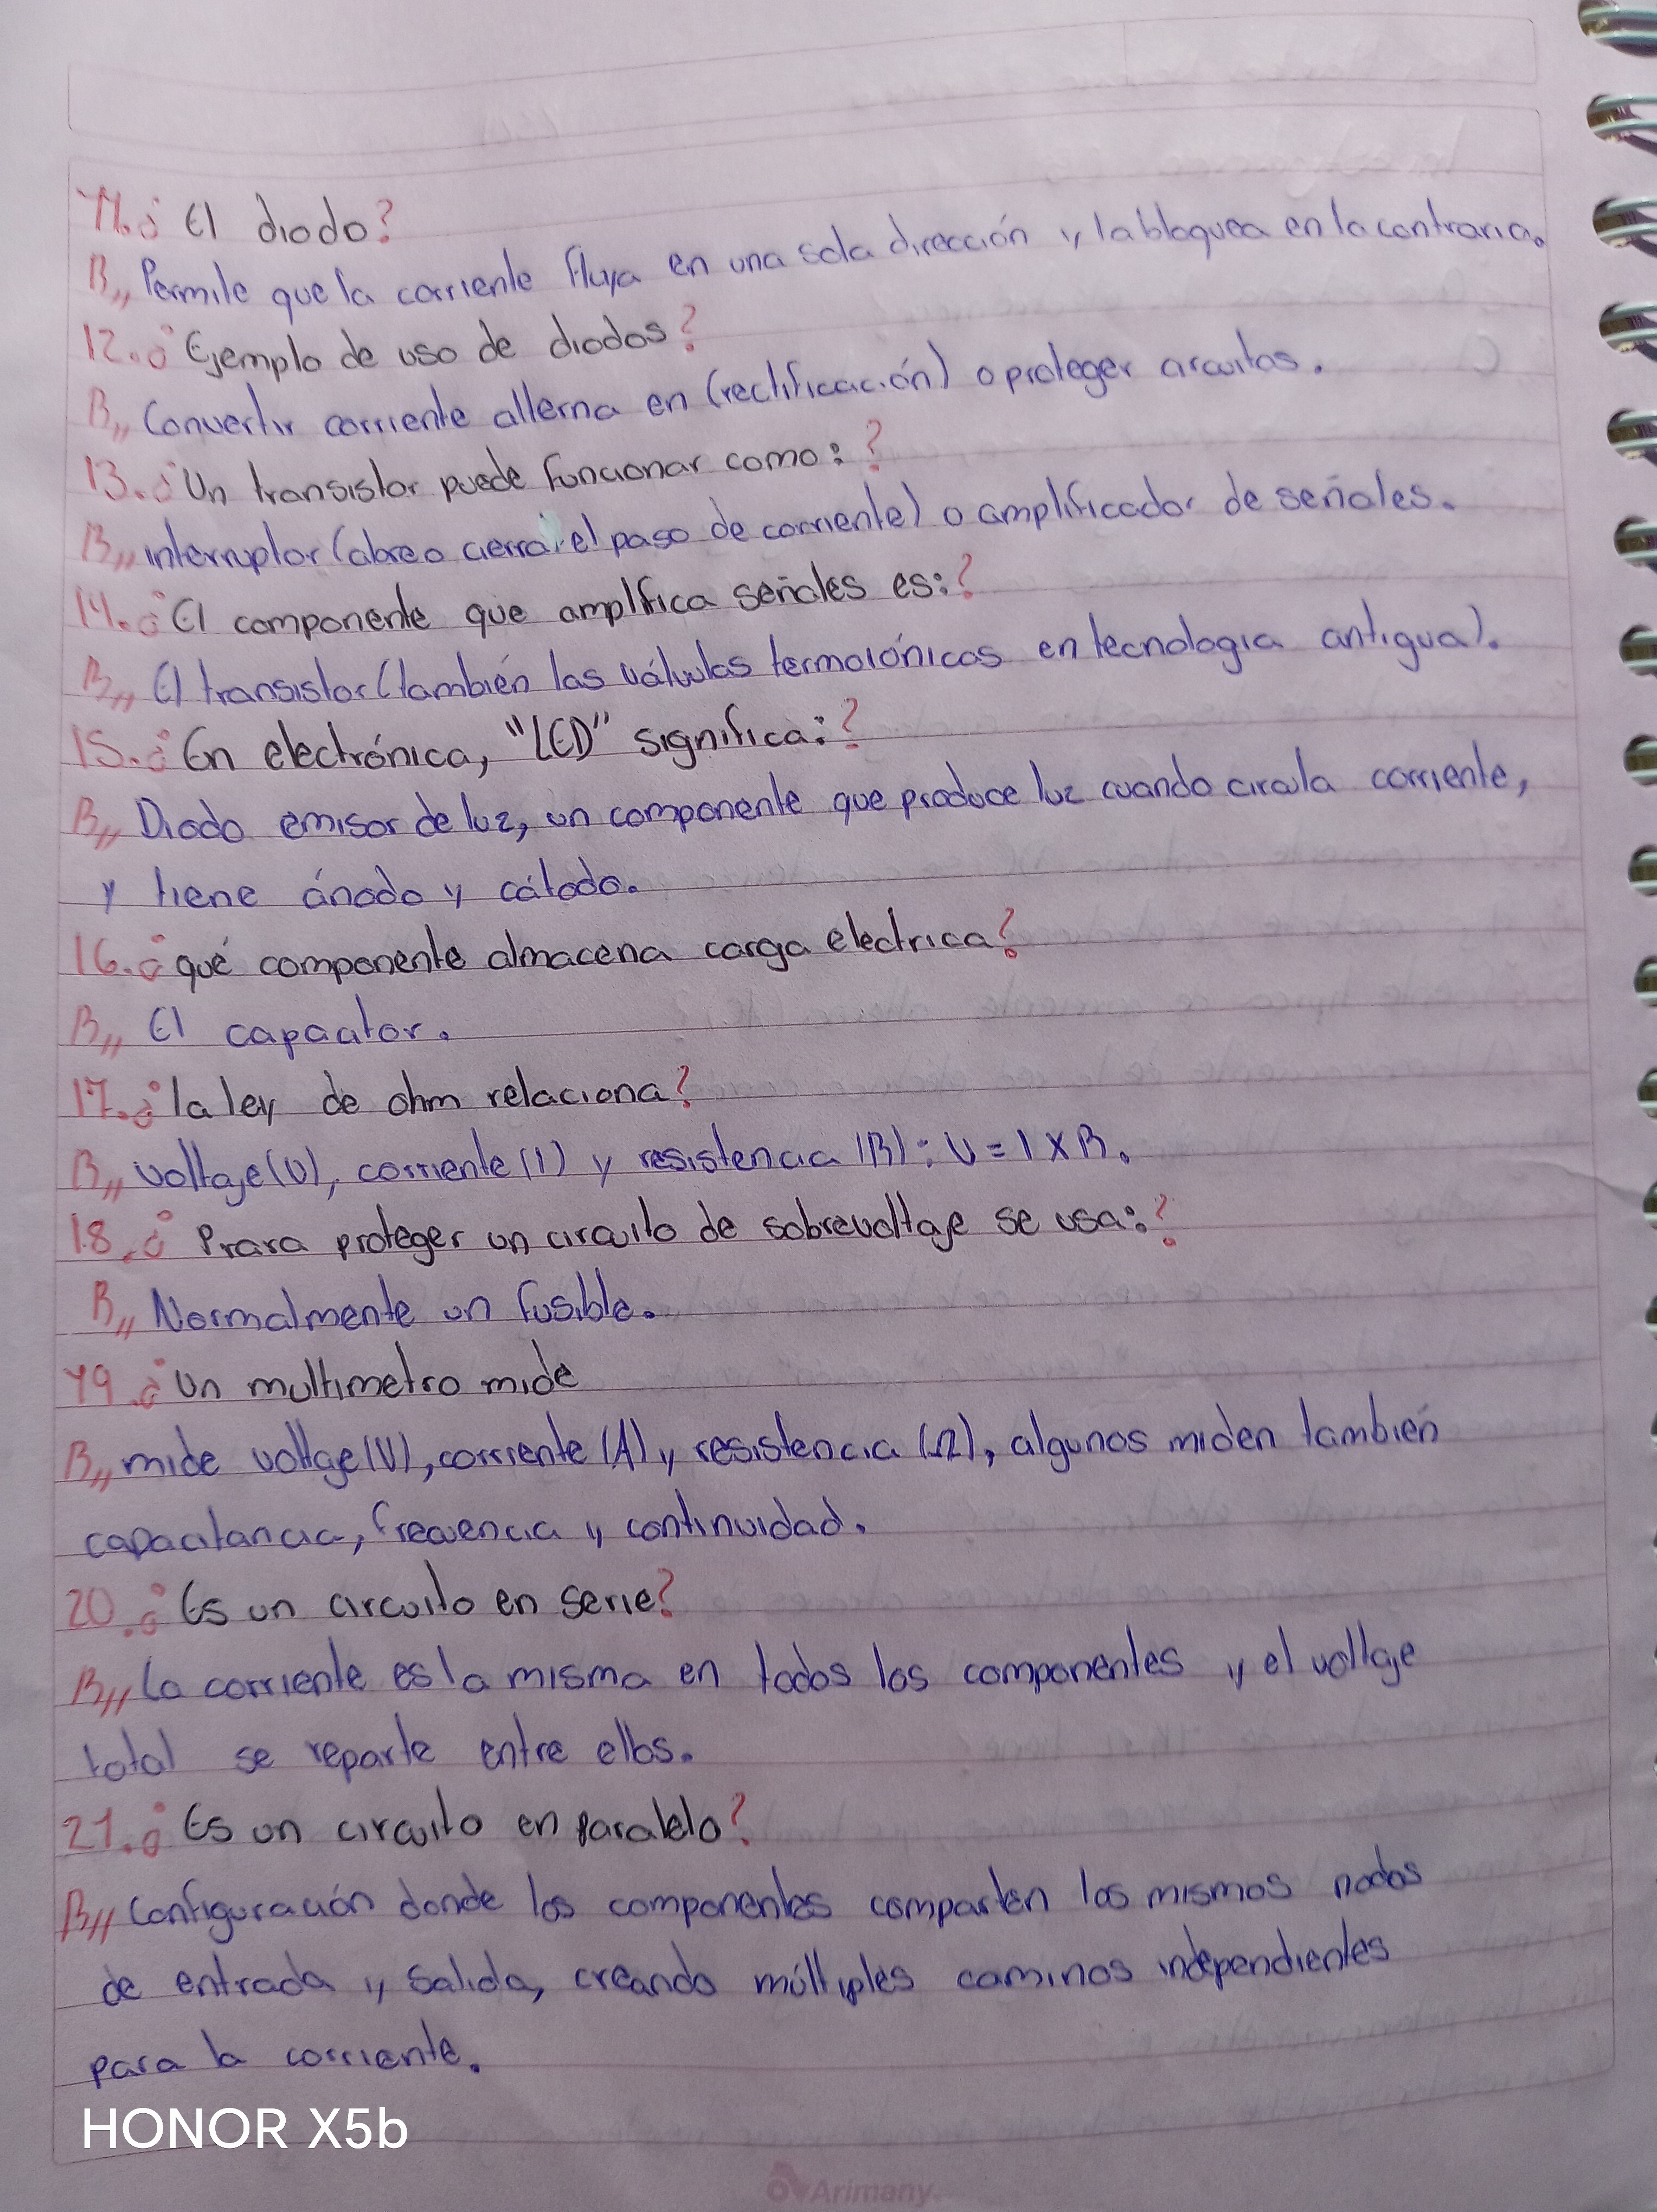 11.¿ El diodo?
R,, Permite que la corriente fluya en una sola dirección y la bloquea en la contraria.
12.¿ Ejemplo de uso de diodos?
R,, Convertir corriente alterna en (rectificación) o proteger circuitos.
13.¿ Un transistor puede funcionar como:?
R,, interruptor (abre o cierra el paso de corriente) o amplificador de señales.
14.¿ El componente que amplifica señales es:?
R,, El transistor (también las válvulas termoiónicas en tecnología antigua).
15.¿ En electrónica, "LED" significa:?
R,, Diodo emisor de luz, un componente que produce luz cuando circula corriente,
y tiene ánodo y cátodo.
16.¿ qué componente almacena carga electrica?
R,, El capacitor.
17.¿ la ley de ohm relaciona?
R,, voltaje (V), corriente (I) y resistencia (R): V = I X R.
18.¿ Prara proteger un circuito de sobrevoltaje se usa:?
R,, Normalmente un fusible.
19.¿ Un multimetro mide
R,, mide voltge (V), corriente (A) y resistencia (Ω), algunos miden también
capacitancia, frecuencia y continuidad.
20.¿ Es un circuito en serie?
R,, La corriente es la misma en todos los componentes y el voltaje
total se reparte entre ellos.
21.¿ Es un circuito en paralelo?
R,, Configuración donde los componentes comparten los mismos nodos
de entrada y salida, creando múltiples caminos independientes
para la corriente.
HONOR X5b
Arimany.